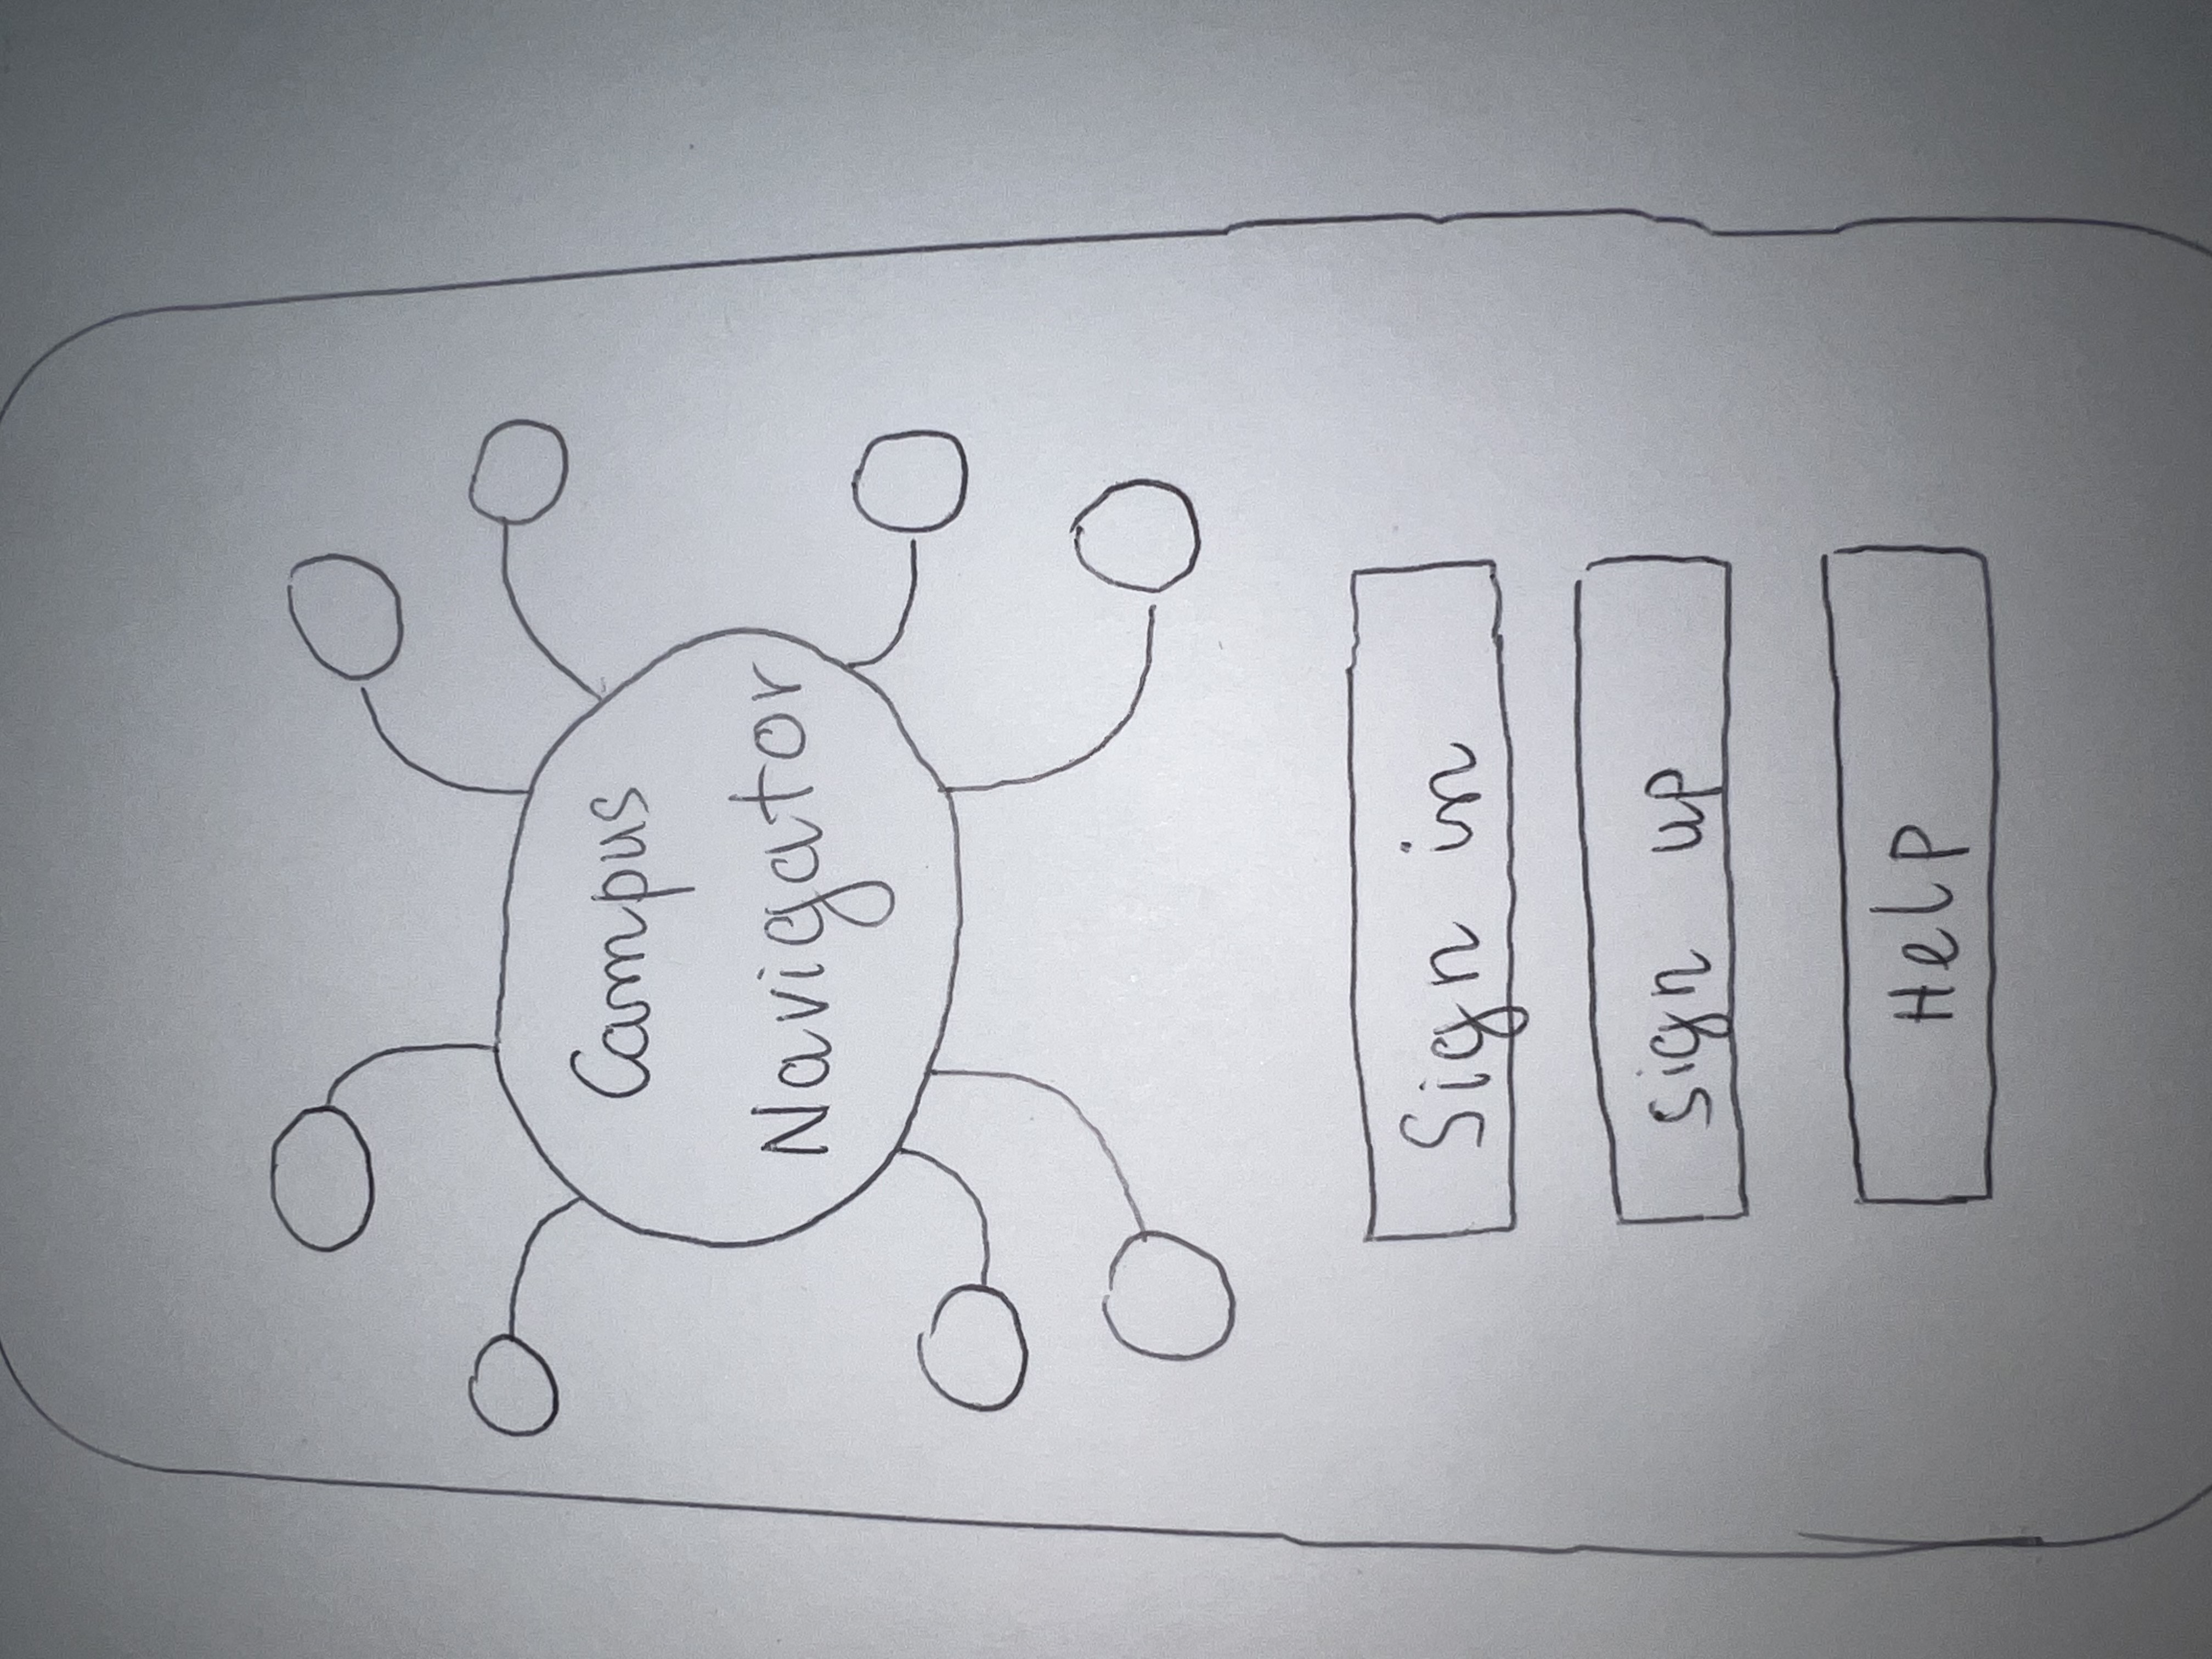 Campus
Navigator
Sign in
sign up
Help